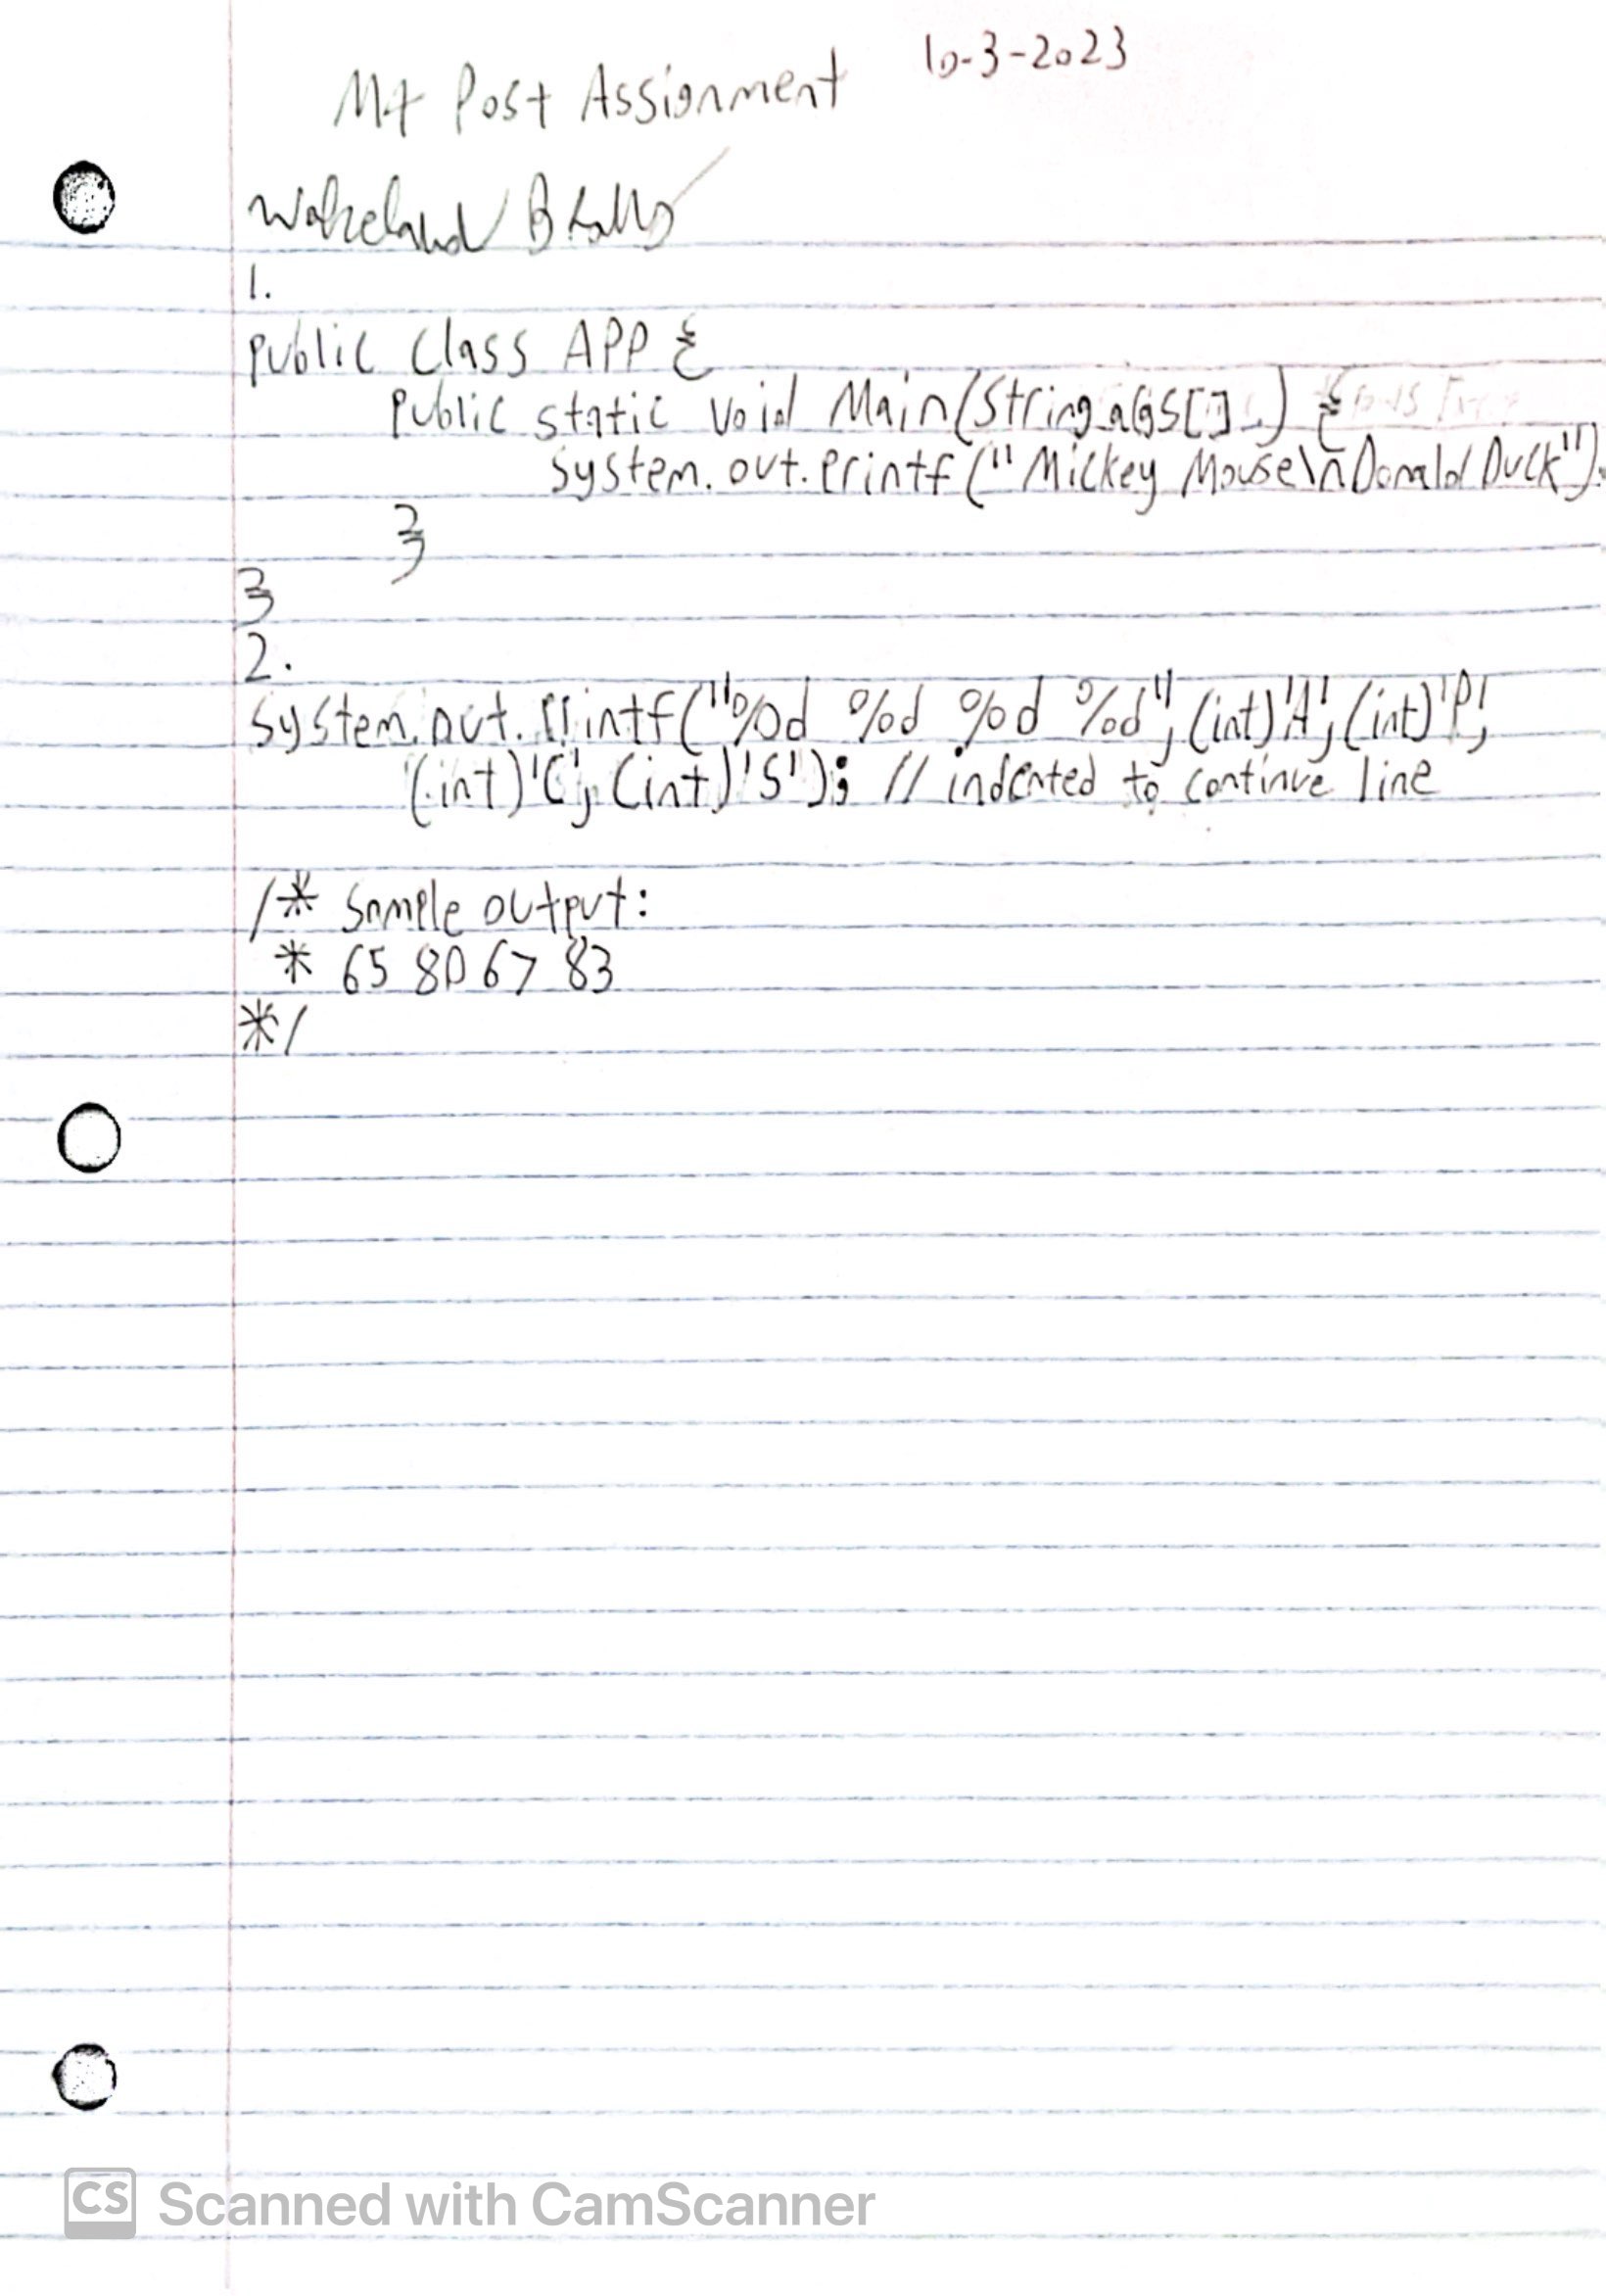 10-3-2023
M4 Post Assignment
Wakeland
1.
public class APP {
public static void Main(String args[]) {
system.out.printf("Mickey Mouse\nDonald Duck");
}
}
2.
system.out.printf("%d %d %d %d", (int)'A', (int)'P',
(int)'C', (int)'S'); // indented to continue line
/* Sample output:
* 65 80 67 83
*/
CS Scanned with CamScanner